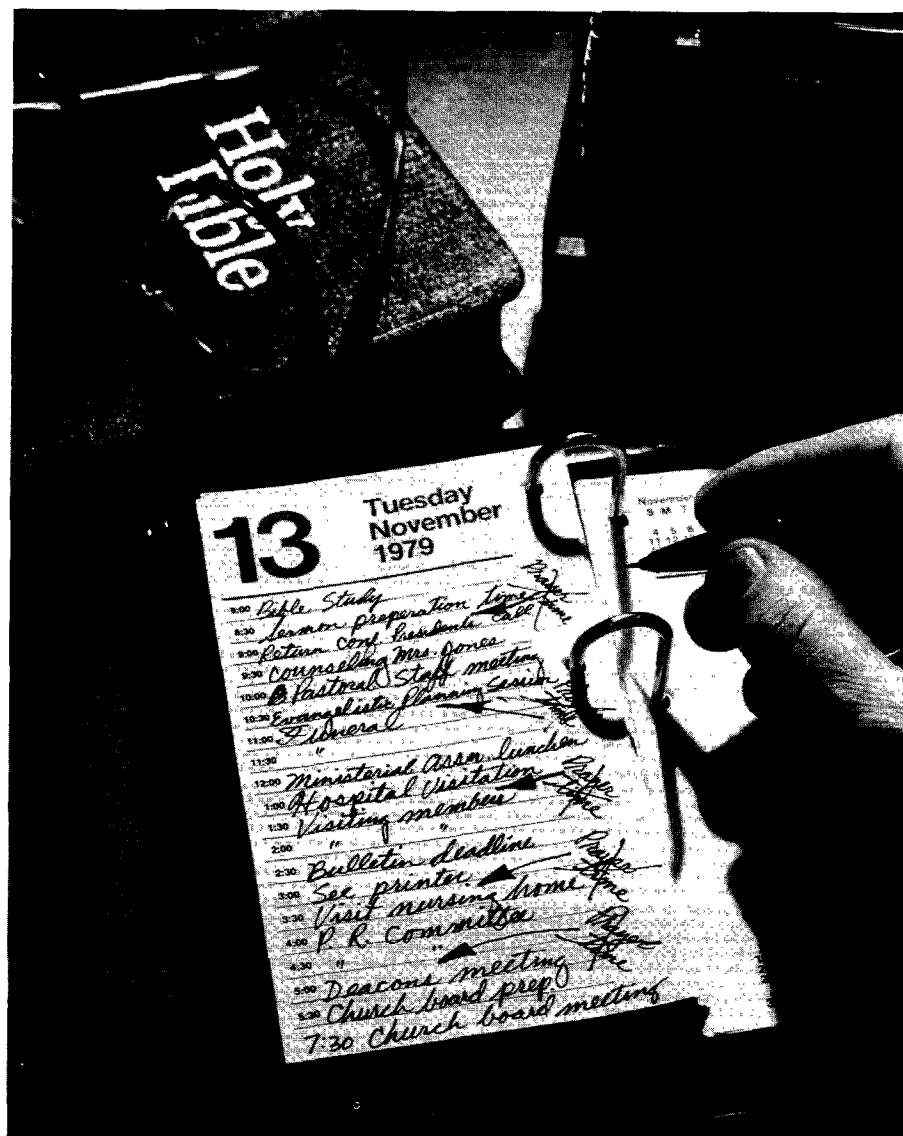 Holy
Bible
13
Tuesday
November
1979
November
S M T
4 5 6
11 12
8:00 Bible Study
8:30 Sermon preperation time
Prayer
Time
9:00 Return Conf. Presidents Call
9:30 Counseling Mrs. Jones
10:00 Pastoral Staff meeting
10:30 Evangelistic Planning Session
11:00 Funeral
Time
11:30 "
12:00 Ministerial Assn. luncheon
1:00 Hospital Visitation
Prayer
Time
1:30 Visiting members
2:00 " " "
2:30 Bulletin deadline
3:00 See printer
Prayer
Time
3:30 Visit nursing home
4:00 P. R. Committee
4:30 " "
Prayer
Time
5:00 Deacons meeting
5:30 Church board prep
7:30 Church board meeting